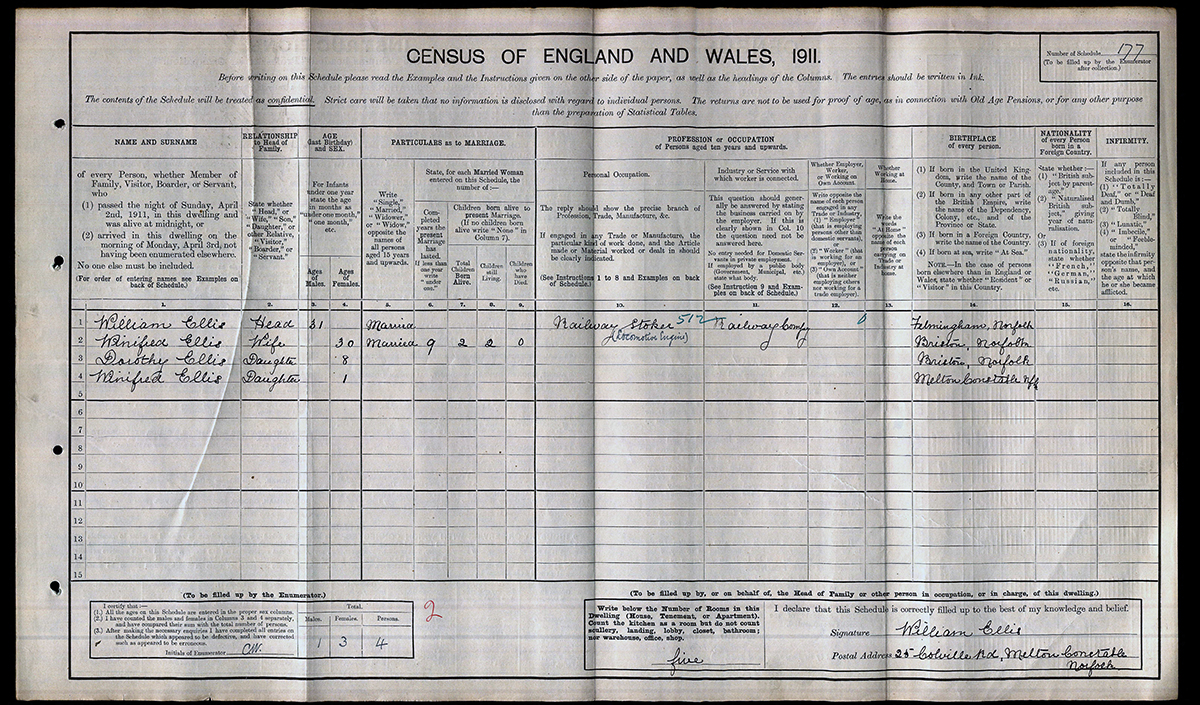 CENSUS OF ENGLAND AND WALES, 1911.
Number of Schedule 177
(To be filled up by the Enumerator
after collection.)
Before writing on this Schedule please read the Examples and the Instructions given on the other side of the paper, as well as the headings of the Columns. The entries should be written in Ink.
The contents of the Schedule will be treated as confidential. Strict care will be taken that no information is disclosed with regard to individual persons. The returns are not to be used for proof of age, as in connection with Old Age Pensions, or for any other purpose
than the preparation of Statistical Tables.
NAME AND SURNAME
of every Person, whether Member of
Family, Visitor, Boarder, or Servant,
who
(1) passed the night of Sunday, April
2nd, 1911, in this dwelling and
was alive at midnight, or
(2) arrived in this dwelling on the
morning of Monday, April 3rd, not
having been enumerated elsewhere.
No one else must be included.
(For order of entering names see Examples on
back of Schedule.)
RELATIONSHIP
to Head of
Family.
State whether
"Head," or
"Wife," "Son,"
"Daughter," or
other Relative,
"Visitor,"
"Boarder," or
"Servant."
AGE
(last Birthday)
and SEX.
For Infants
under one year
state the age
in months as
"under one month,"
"one month,"
etc.
Ages
of
Males.
Ages
of
Females.
PARTICULARS as to MARRIAGE.
Write
"Single,"
"Married,"
"Widower,"
or "Widow,"
opposite the
names of
all persons
aged 15 years
and upwards.
State, for each Married Woman
entered on this Schedule, the
number of:—
Completed
years the
present
Marriage
has
lasted.
If less than
one year
write
"under
one."
Children born alive to
present Marriage.
(If no children born
alive write "None" in
Column 7).
Total
Children
Born
Alive.
Children
still
Living.
Children
who
have
Died.
PROFESSION or OCCUPATION
of Persons aged ten years and upwards.
Personal Occupation.
The reply should show the precise branch of
Profession, Trade, Manufacture, &c.
If engaged in any Trade or Manufacture, the
particular kind of work done, and the Article
made or Material worked or dealt in should
be clearly indicated.
(See Instructions 1 to 8 and Examples on back
of Schedule.)
Industry or Service with
which worker is connected.
This question should gener-
ally be answered by stating
the business carried on by
the employer. If this is
clearly shown in Col. 10
the question need not be
answered here.
No entry needed for Domestic Ser-
vants in private employment.
If employed by a public body
(Government, Municipal, etc.)
state what body.
(See Instruction 9 and Exam-
ples on back of Schedule.)
Whether Employer,
Worker,
or Working on
Own Account.
Write opposite the
name of each person
engaged in any
Trade or Industry,
(1) "Employer"
(that is employing
persons other than
domestic servants),
or
(2) "Worker" (that
is working for an
employer), or
(3) "Own Account"
(that is neither
employing others
nor working for a
trade employer).
Whether
Working at
Home.
Write the
words
"At Home"
opposite the
name of each
person
carrying on
Trade or
Industry at
home.
BIRTHPLACE
of every person.
(1) If born in the United King-
dom, write the name of the
County, and Town or Parish.
(2) If born in any other part of
the British Empire, write
the name of the Dependency,
Colony, etc., and of the
Province or State.
(3) If born in a Foreign Country,
write the name of the Country.
(4) If born at sea, write "At Sea."
NOTE.—In the case of persons
born elsewhere than in England or
Wales, state whether "Resident" or
"Visitor" in this Country.
NATIONALITY
of every Person
born in a
Foreign Country.
State whether:—
(1) "British sub-
ject by parent-
age,"
(2) "Naturalised
British sub-
ject," giving
year of natu-
ralisation.
Or
(3) If of foreign
nationality,
state whether
"French,"
"German,"
"Russian,"
etc.
INFIRMITY.
If any person
included in this
Schedule is:—
(1) "Totally
Deaf," or "Deaf
and Dumb,"
(2) "Totally
Blind,"
(3) "Lunatic,"
(4) "Imbecile,"
or "Feeble-
minded,"
state the infirmity
opposite that per-
son's name, and
the age at which
he or she became
afflicted.
1. 2. 3. 4. 5. 6. 7. 8. 9. 10. 11. 12. 13. 14. 15. 16.
1 William Ellis Head 31 Married Railway Stoker 512 Railway Compy Felmingham, Norfolk
(Locomotive Engine)
2 Winifred Ellis Wife 30 Married 9 2 2 0 Briston, Norfolk
3 Dorothy Ellis Daughter 8 Briston, Norfolk
4 Winifred Ellis Daughter 1 Melton Constable Nfk
5
6
7
8
9
10
11
12
13
14
15
(To be filled up by the Enumerator.)
I certify that:—
(1.) All the ages on this Schedule are entered in the proper sex columns.
(2.) I have counted the males and females in Columns 3 and 4 separately,
and have compared their sum with the total number of persons.
(3.) After making the necessary enquiries I have completed all entries on
the Schedule which appeared to be defective, and have corrected
such as appeared to be erroneous.
Initials of Enumerator CW.
Total.
Males. Females. Persons.
1 3 4
2
(To be filled up by, or on behalf of, the Head of Family or other person in occupation, or in charge, of this dwelling.)
Write below the Number of Rooms in this
Dwelling (House, Tenement, or Apartment).
Count the kitchen as a room but do not count
scullery, landing, lobby, closet, bathroom;
nor warehouse, office, shop.
five
I declare that this Schedule is correctly filled up to the best of my knowledge and belief.
Signature William Ellis
Postal Address 25 Colville Rd, Melton Constable
Norfolk